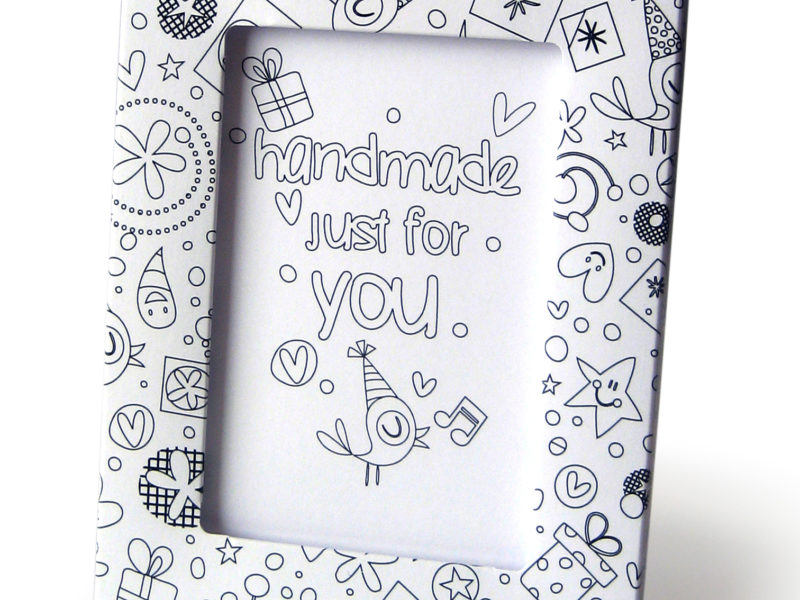 handmade
just for
you.